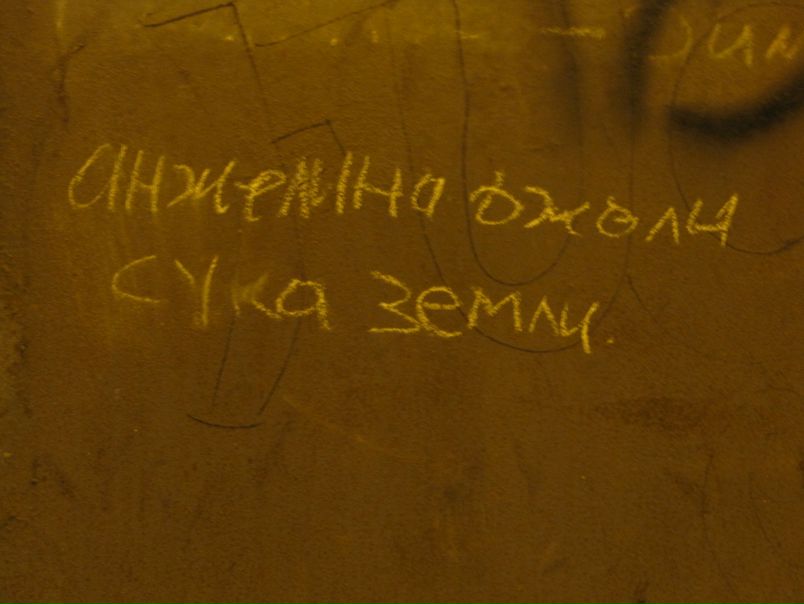 анжелина джоли
сука земли.